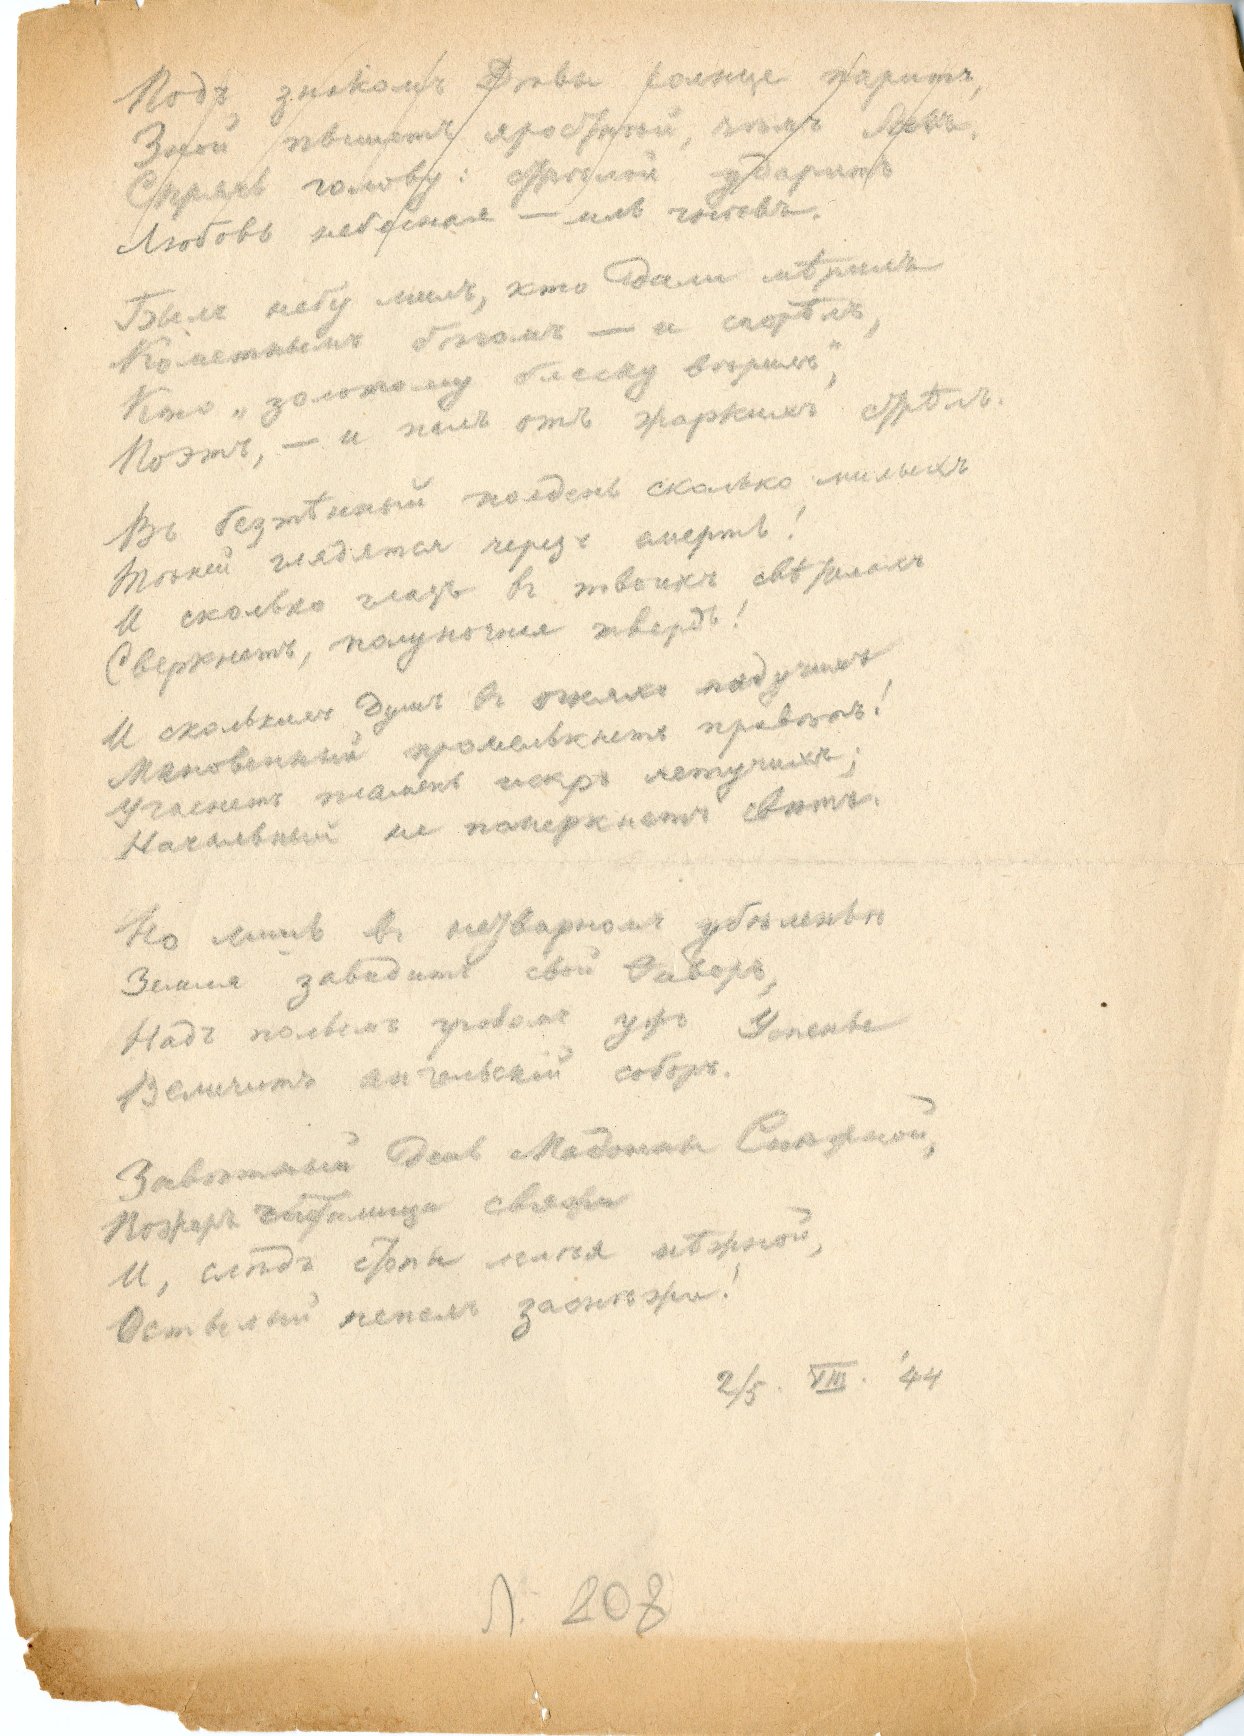 Подъ знакомъ Дѣвы солнце жаритъ,
Зной пышетъ яростнѣй, чѣмъ Левъ.
Спрячь голову: стрѣлой ударитъ
Любовь небесная — иль гнѣвъ.
Былъ небу милъ, кто дали мѣрилъ
Кометнымъ бѣгомъ — и сгорѣлъ,
Кто „золотому блеску вѣрилъ",
Поэтъ, — и палъ отъ жаркихъ стрѣлъ.
Въ безтѣнный полдень сколько милыхъ
Тѣней глядятся чрезъ смерть!
И сколько глазъ въ твоихъ свѣтилахъ
Сверкнетъ, полуночная твердь!
И сколькихъ душъ въ огняхъ падучихъ
Мгновенный промелькнетъ привѣтъ!
Угаснетъ пламень искръ летучихъ;
Начальный не померкнетъ свѣтъ.
Но лишь въ нетварномъ убѣленьи
Земля завидитъ свой Ѳаворъ,
Надъ полымъ гробомъ ужъ Успенье
Величитъ ангельскій соборъ.
Завѣтный день Мадонны Снѣжной,
Пожаръ чистилища свяжи
И, слѣдъ стопы лелѣя нѣжной,
Остылый пепелъ заснѣжи!
2/5. VIII. '44
Л. 208